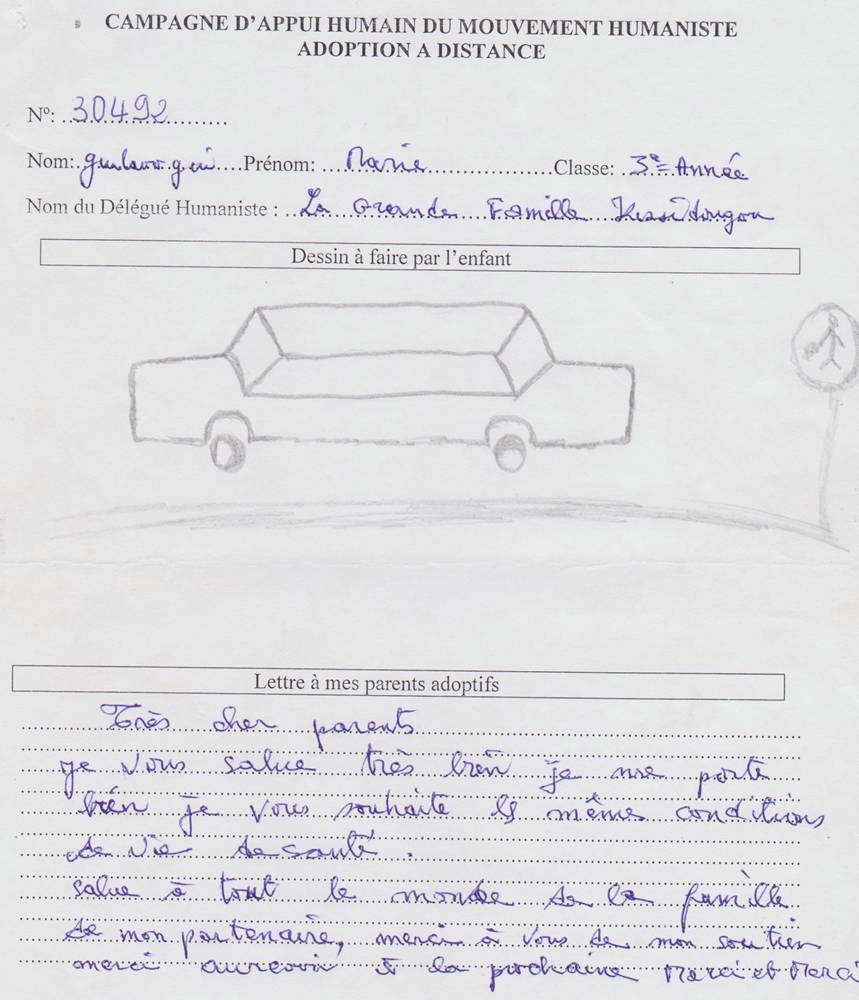 CAMPAGNE D'APPUI HUMAIN DU MOUVEMENT HUMANISTE
ADOPTION A DISTANCE
N°: 30492
Nom: Prénom: Marie Classe: 3e Année
Nom du Délégué Humaniste : La Grande Famille Kissidougou
Dessin à faire par l'enfant
Lettre à mes parents adoptifs
Très cher parents
je vous salue très bien je me porte
bien je vous souhaite les mêmes conditions
de vie de santé.
salue à tout le monde de la famille
de mon partenaire, merci à vous de mon soutien
merci aurevoir à la prochaine Merci et Merci